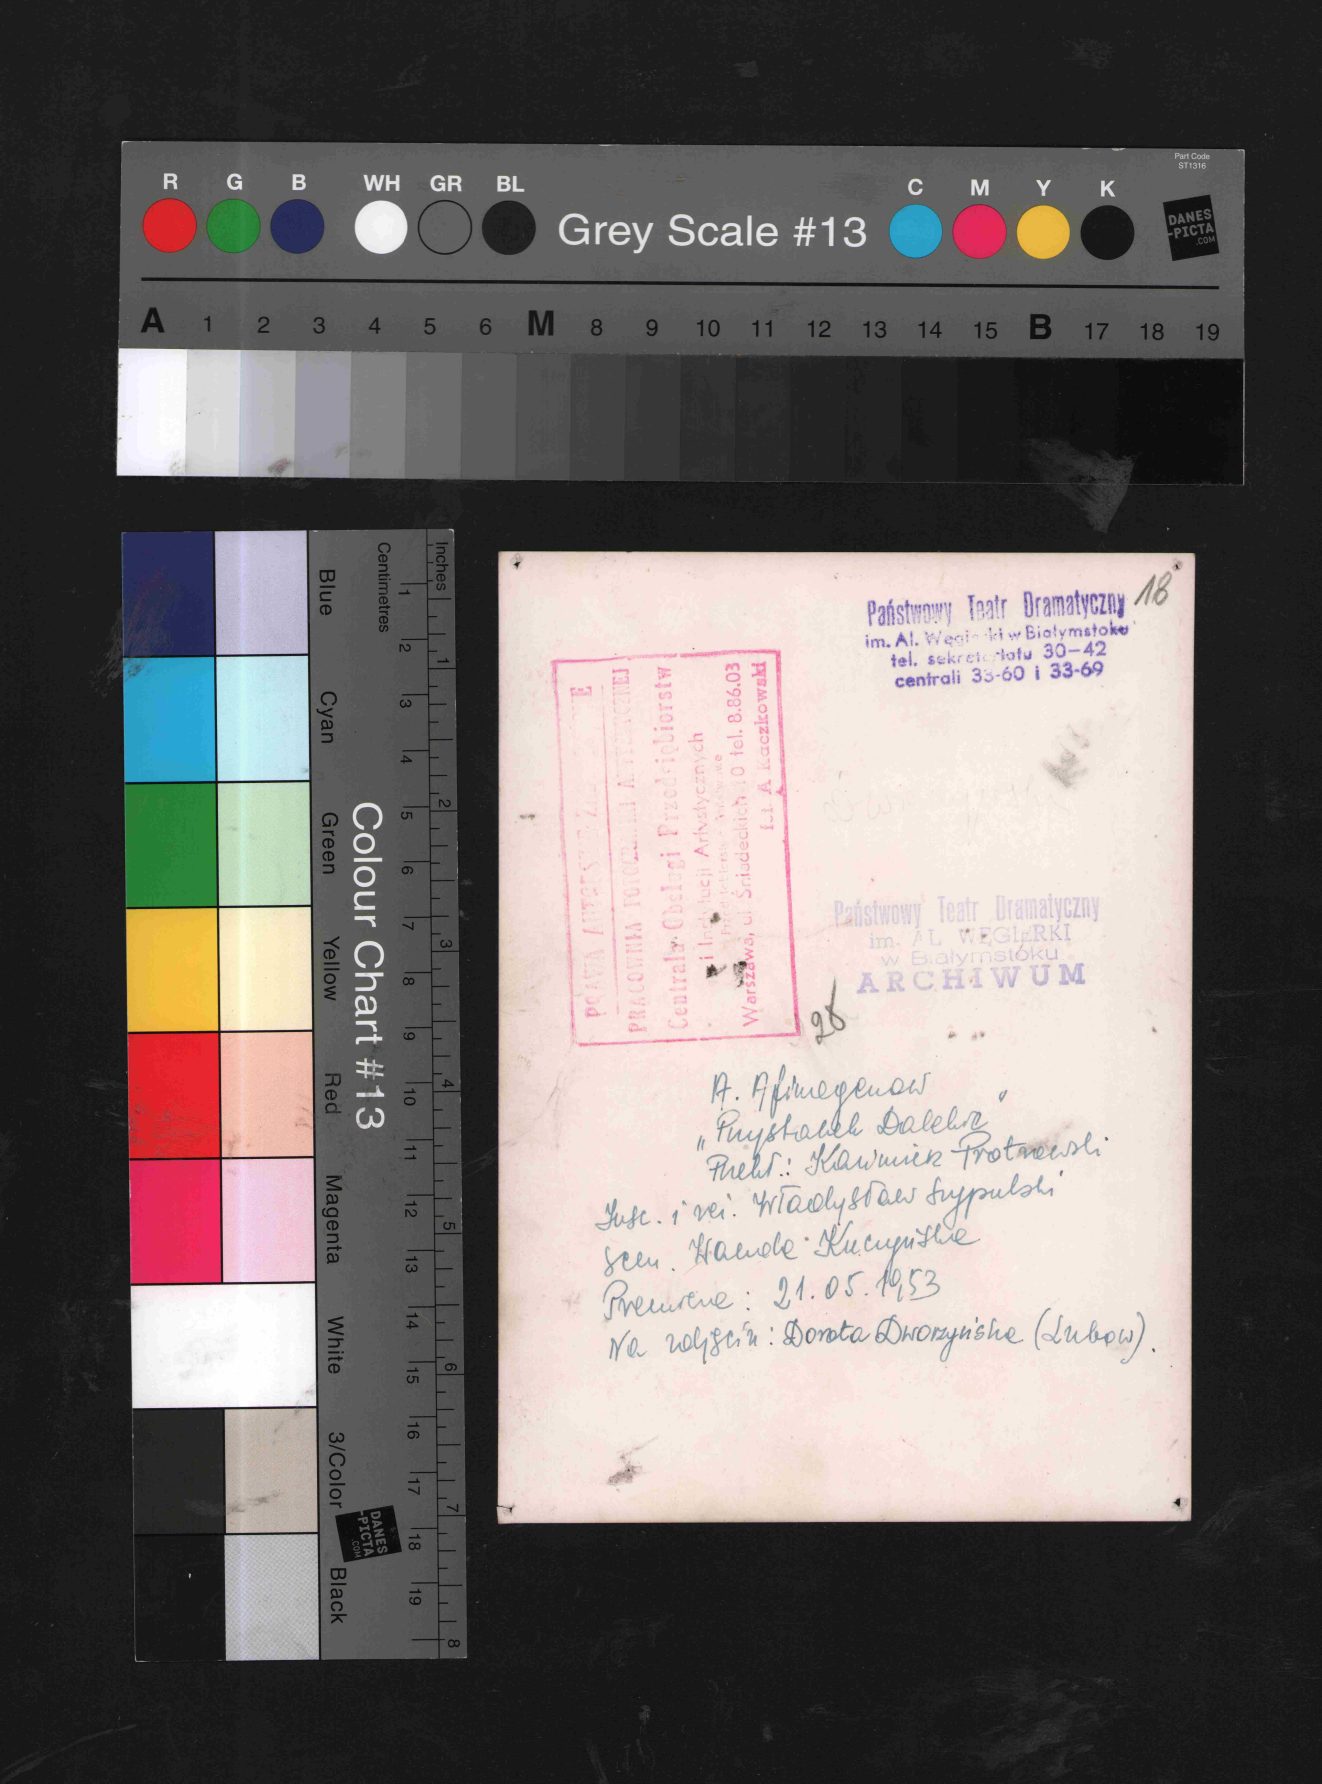 Part Code
ST1316
R G B WH GR BL Grey Scale #13 C M Y K
DANES
-PICTA
.COM
A 1 2 3 4 5 6 M 8 9 10 11 12 13 14 15 B 17 18 19
Blue
Cyan
Green
Yellow
Red
Magenta
White
3/Color
Black
Colour Chart #13
DANES
-PICTA
.COM
Centimetres
1 2 3 4 5 6 7 8 9 10 11 12 13 14 15 16 17 18 19
Inches
1 2 3 4 5 6 7 8
18
Państwowy Teatr Dramatyczny
im. Al. Węgierki w Białymstoku
tel. sekretariatu 30-42
centrali 33-60 i 33-69
PRAWA AUTORSKIE
PRACOWNIA FOTOGRAFII ARTYSTYCZNEJ
Centrala Obsługi Przedsiębiorstw
i Instytucji Artystycznych
Warszawa, ul. Śniadeckich 10 tel. 8.86.03
fot. A. Kaczkowski
Państwowy Teatr Dramatyczny
im. AL. WĘGIERKI
w Białymstoku
ARCHIWUM
28
A. Afinogenow
„Przystanek Daleki"
Przekł.: Kazimierz Piotrowski
Insc. i reż. Władysław Szypulski
Scen. Wanda Kuczyńska
Premiera: 21.05.1953
Na zdjęciu: Dorota Dworzyńska (Lubow).